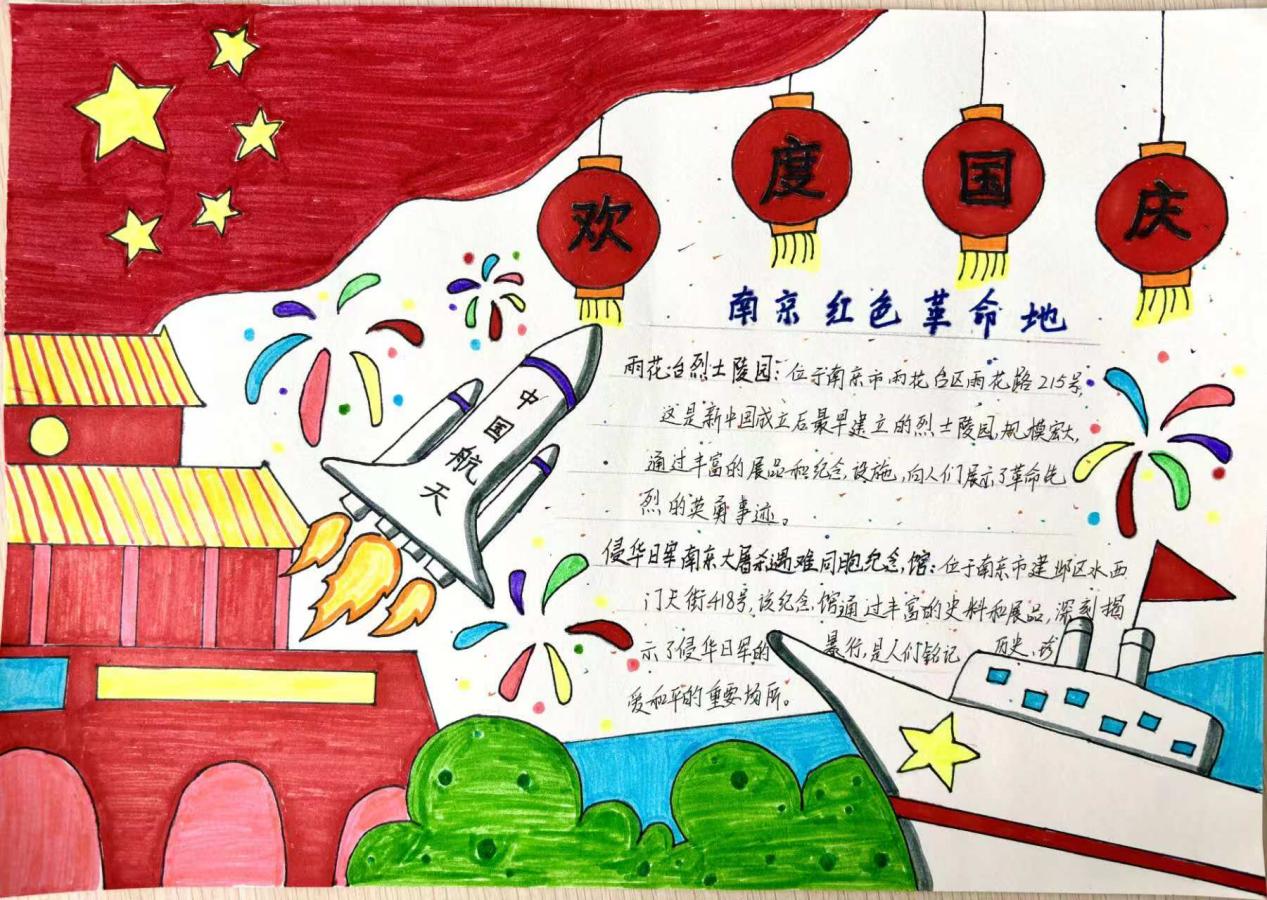 欢度国庆
南京红色革命地
中国航天
雨花台烈士陵园：位于南京市雨花台区雨花路215号，
这是新中国成立后最早建立的烈士陵园，规模宏大，
通过丰富的展品和纪念设施，向人们展示了革命先
烈的英勇事迹。
侵华日军南京大屠杀遇难同胞纪念馆：位于南京市建邺区水西
门大街418号，该纪念馆通过丰富的史料和展品，深刻揭
示了侵华日军的暴行，是人们铭记历史、珍
爱和平的重要场所。